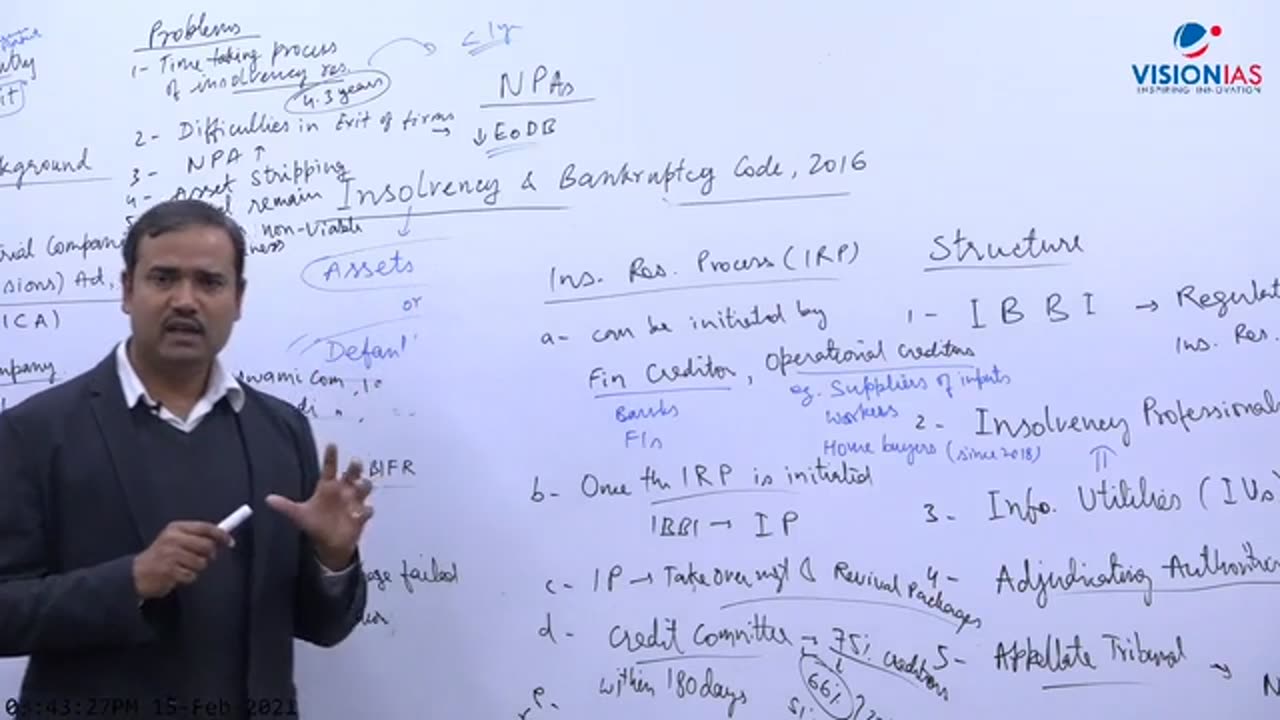 VISIONIAS
INSPIRING INNOVATION
Problems
1- Time taking process
of insolvency res.
4.3 years
< 1yr
NPAs
2- Difficulties in Exit of firms → ↓ EoDB
3- NPA ↑
4- Asset stripping
remain
non-viable
kground
Insolvency & Bankruptcy Code, 2016
Assets
or
Defaul
rial Compan
sions) Act,
ICA)
mpany
wami Com
BIFR
failed
Ins. Res. Process (IRP)
a- can be initiated by
Fin Creditor, Operational Creditors
Banks
FIs
eg. Suppliers of inputs
workers
Home buyers (since 2018)
b- Once the IRP is initiated
IBBI → IP
c- IP → Take over mgt & Revival Packages
d- Credit Committee → 75% creditors
66%
within 180 days
e-
Structure
1- IBBI → Regulat
Ins. Res.
2- Insolvency Professionals
3- Info. Utilities (IUs)
4- Adjudicating Authorit
5- Appellate Tribunal → N
03:43:27PM 15-Feb 2021